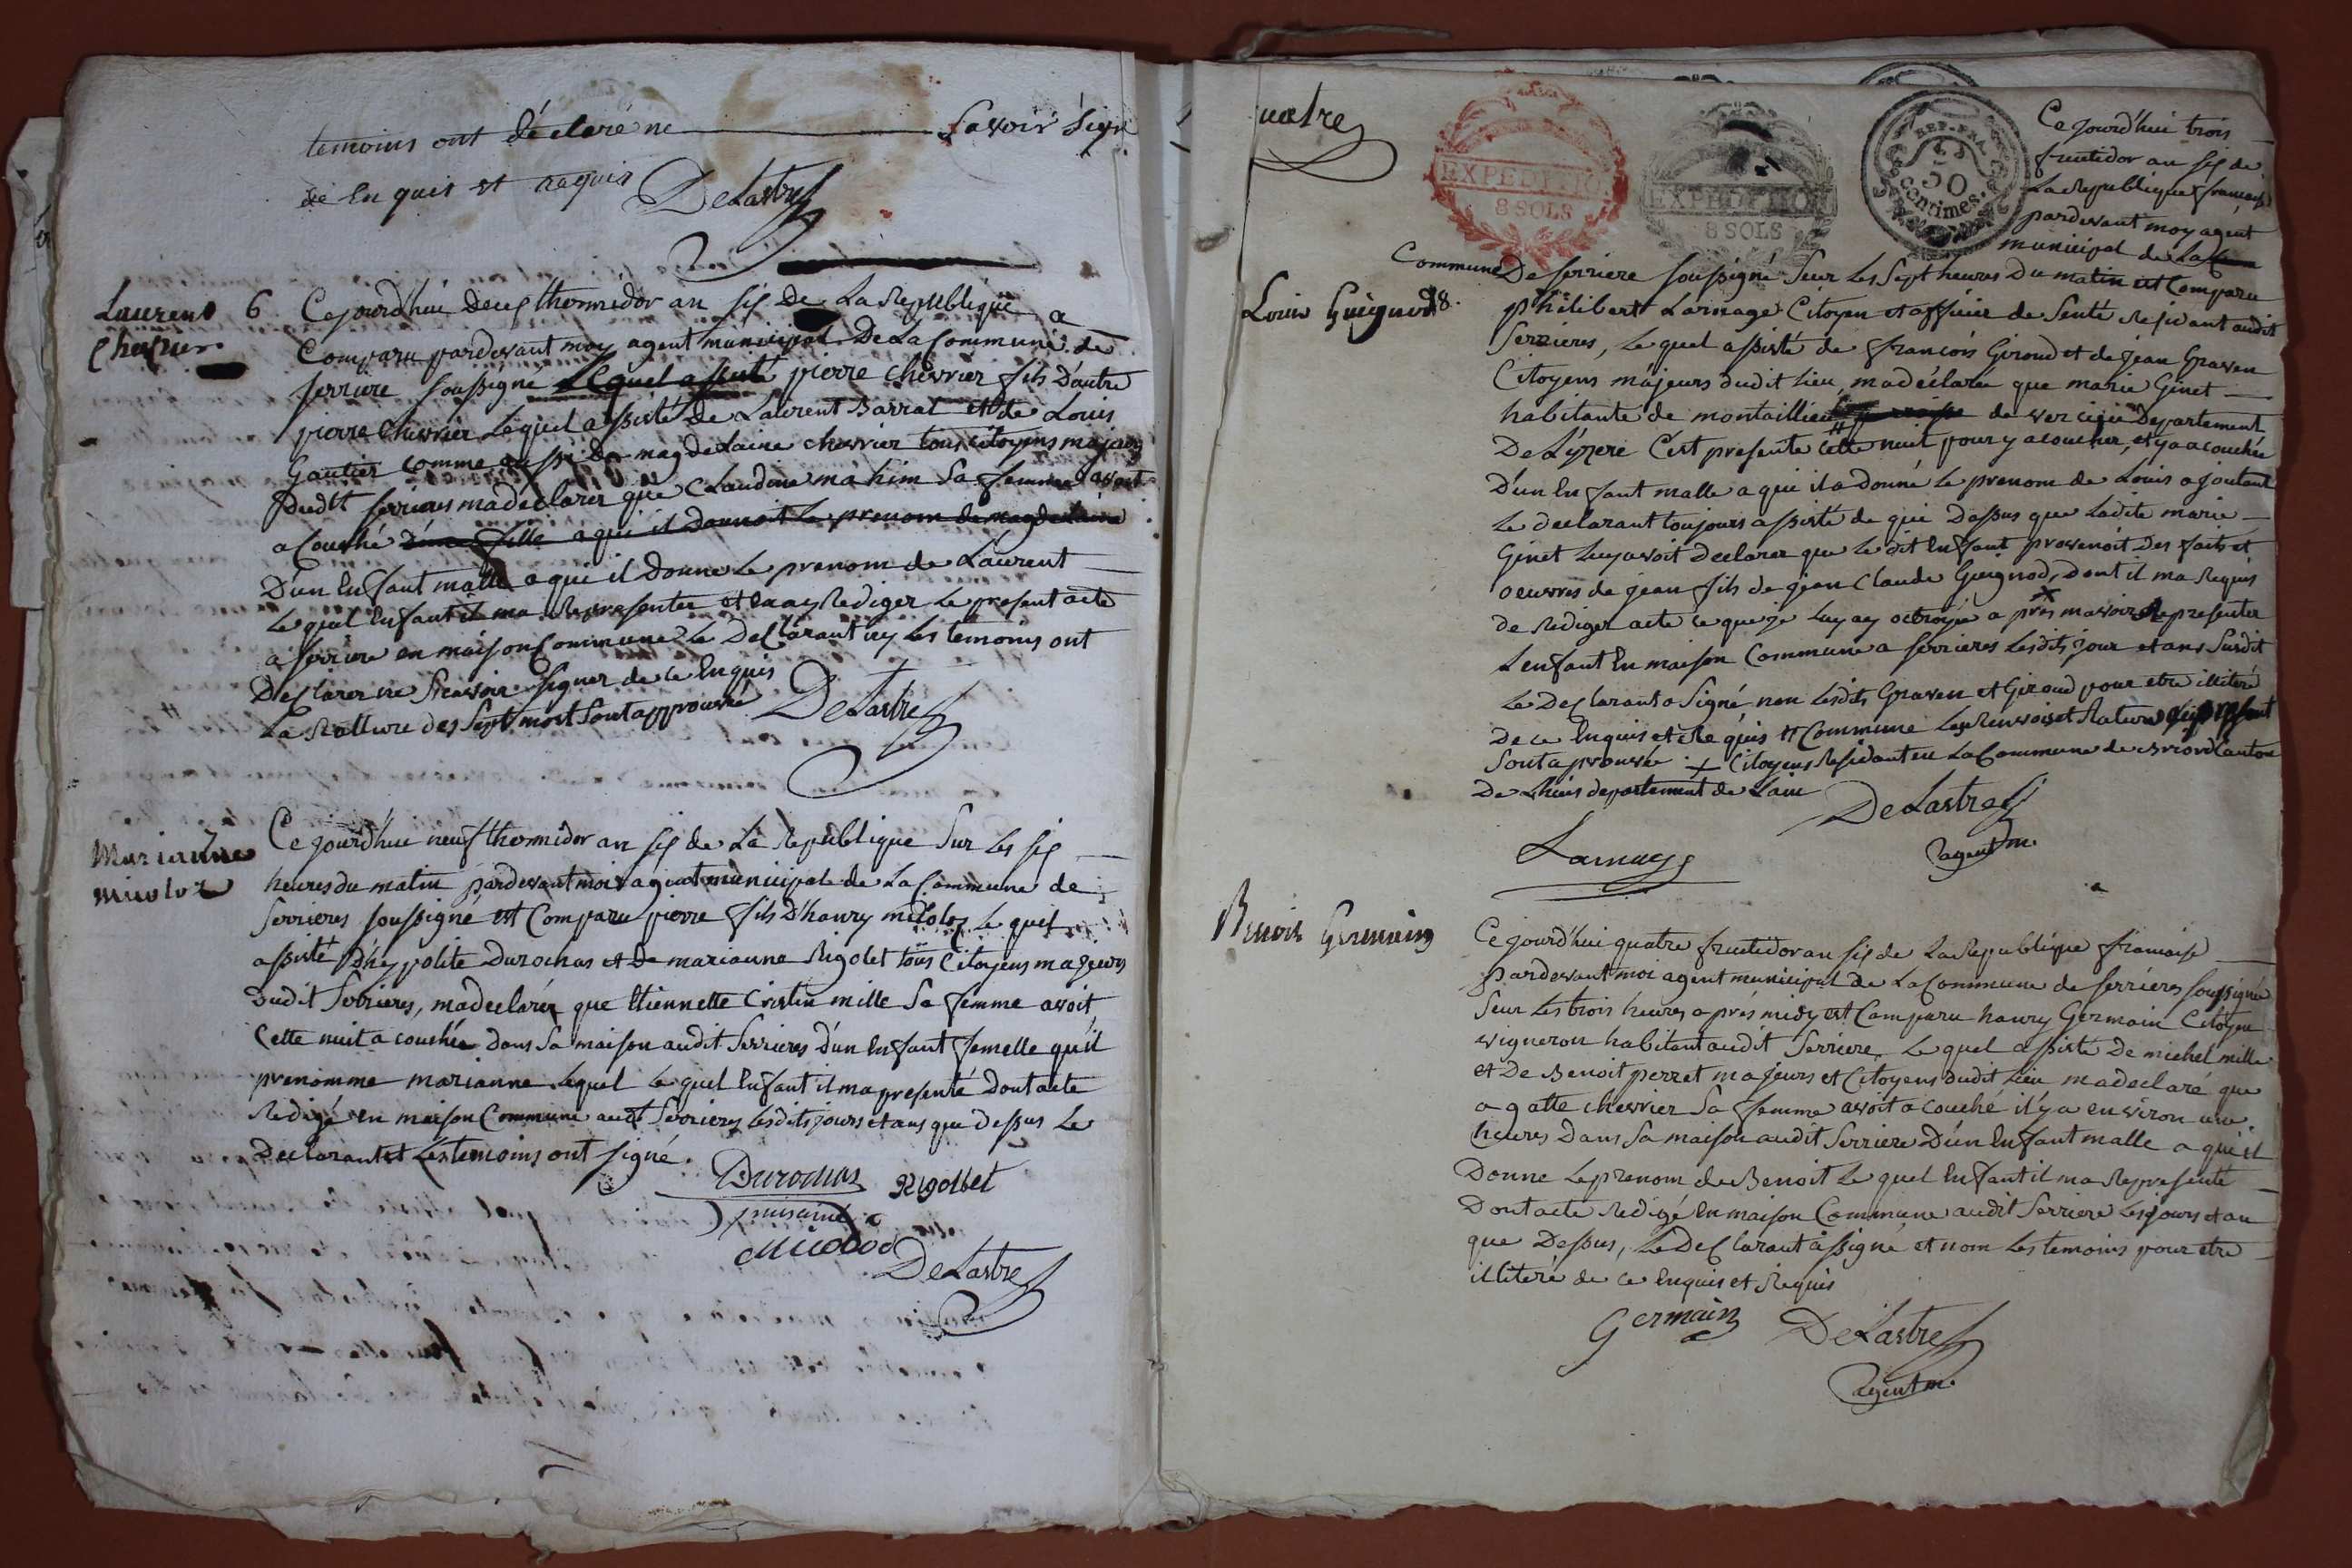 temoins ont déclaré ne savoir signé
de Enquis et Requis DeLastre
Laurent Chevrier 6
Cejourd'hui deux thermidor an six de La Republique a
Comparu pardevant moy agent municipal De La Commune de
serriere soussigné Lequel assisté pierre chevrier fils D'autre
pierre chevrier Lequel assisté de Laurent Barrat et de Louis
Gautier comme aussi de magdelaine chevrier tous citoyens majeurs
dudt serrieres madeclarer que Claudine mahim sa femme avoit
acouché d'une fille a qui il donnoit le prenom de magdelaine
D'un Enfant malle a qui il Donne Le prenom de Laurent
Lequel Enfant il ma Representer et En ay Rediger Le present acte
a serriere en maison Commune Le Declarant ny Les temoins ont
Declarer ne scavoir signer de ce Enquis
La Rature des sept mots sont approuvé DeLastre
Marianne Micoloz 7
Ce jourd'hui neuf thermidor an six de La Republique Sur Les six
heures du matin pardevant moi agent municipal de La Commune de
Serrieres soussigné est Comparu pierre fils D'hanry micoloz Le quel
assisté D'hypolite Durochas et De marianne Rigolet tous Citoyens majeurs
dudit Serrieres, madeclarer que Etiennette Cristin mille Sa femme avoit
Cette nuit acouchée dans Sa maison audit Serrieres d'un Enfant femelle qu'il
prenomme marianne Lequel Le quel Enfant il ma presenté Dont acte
Redigé en maison Commune audt Serrieres Lesdits jours et ans que Dessus Le
Declarant et Les temoins ont signé.
Durochas Rigollet
DeLastre
uatre
EXPEDITION
8 SOLS
EXPEDITION
8 SOLS
REP. FRA.
50
centimes.
Ce jourd'hui trois
fructidor an six de
La Republique francaise
pardevant moy agent
municipal de La
Louis Guignod 8.
Commune De serriere soussigné Sur Les Sept heures Du matin est Comparu
philibert Larnage Citoyen et officier de Senté Residant audit
Serrieres, Le quel assisté de francois Giroud et de jean Graven
Citoyens majeurs dudit Lieu madéclaré que marie Ginet
habitante de montaillieu de vercieu Departement
De L'yzere C'est presenté Cette nuit pour y acoucher, et y a acouchée
D'un Enfant malle a qui il a Donné Le prenom de Louis ajoutant
Le declarant toujours assisté de qui Dessus que Ladite marie
Ginet Luy avoit Declarer que Le dit Enfant provenoit Des faits et
oeuvres de jean fils de jean Claude Guignod, Dont il ma Requis
de Rediger acte ce que je Luy ay octroyé a près mavoir Representer
L'enfant En maison Commune a serrieres Lesdits jour et ans Susdit
Le Declarant a Signé non Lesdits Graven et Giroud pour etre illiteré
De ce Enquis et Requis # Commune Les Renvois et Rature
Sont aprouvée + Citoyens Residant en La Commune de Briord Canton
De Lhuis departement de Lain
DeLastre
agent m.
Larnage
Benoit Germain
Ce jourd'hui quatre fructidor an six de La Republique francaise
pardevant moi agent municipal de La Commune de serrières soussigné
Sur Les trois heures après midy est Comparu hanry Germain Citoyen
vigneron habitant audit Serriere Le quel assisté De michel mille
et De Benoit perret majeurs et Citoyens dudit Lieu madeclaré que
agatte chevrier Sa femme avoit acouché il y a environ une
heures Dans Sa maison audit Serriere D'un Enfant malle a qui il
Donne Le prenom de Benoit Le quel Enfant il ma Representé
Dont acte Redigé En maison Commune audit Serriere Les jours et an
que Dessus, Le Declarant a signé et nom Les temoins pour etre
illiteré de ce Enquis et Requis
Germain DeLastre
agent m.